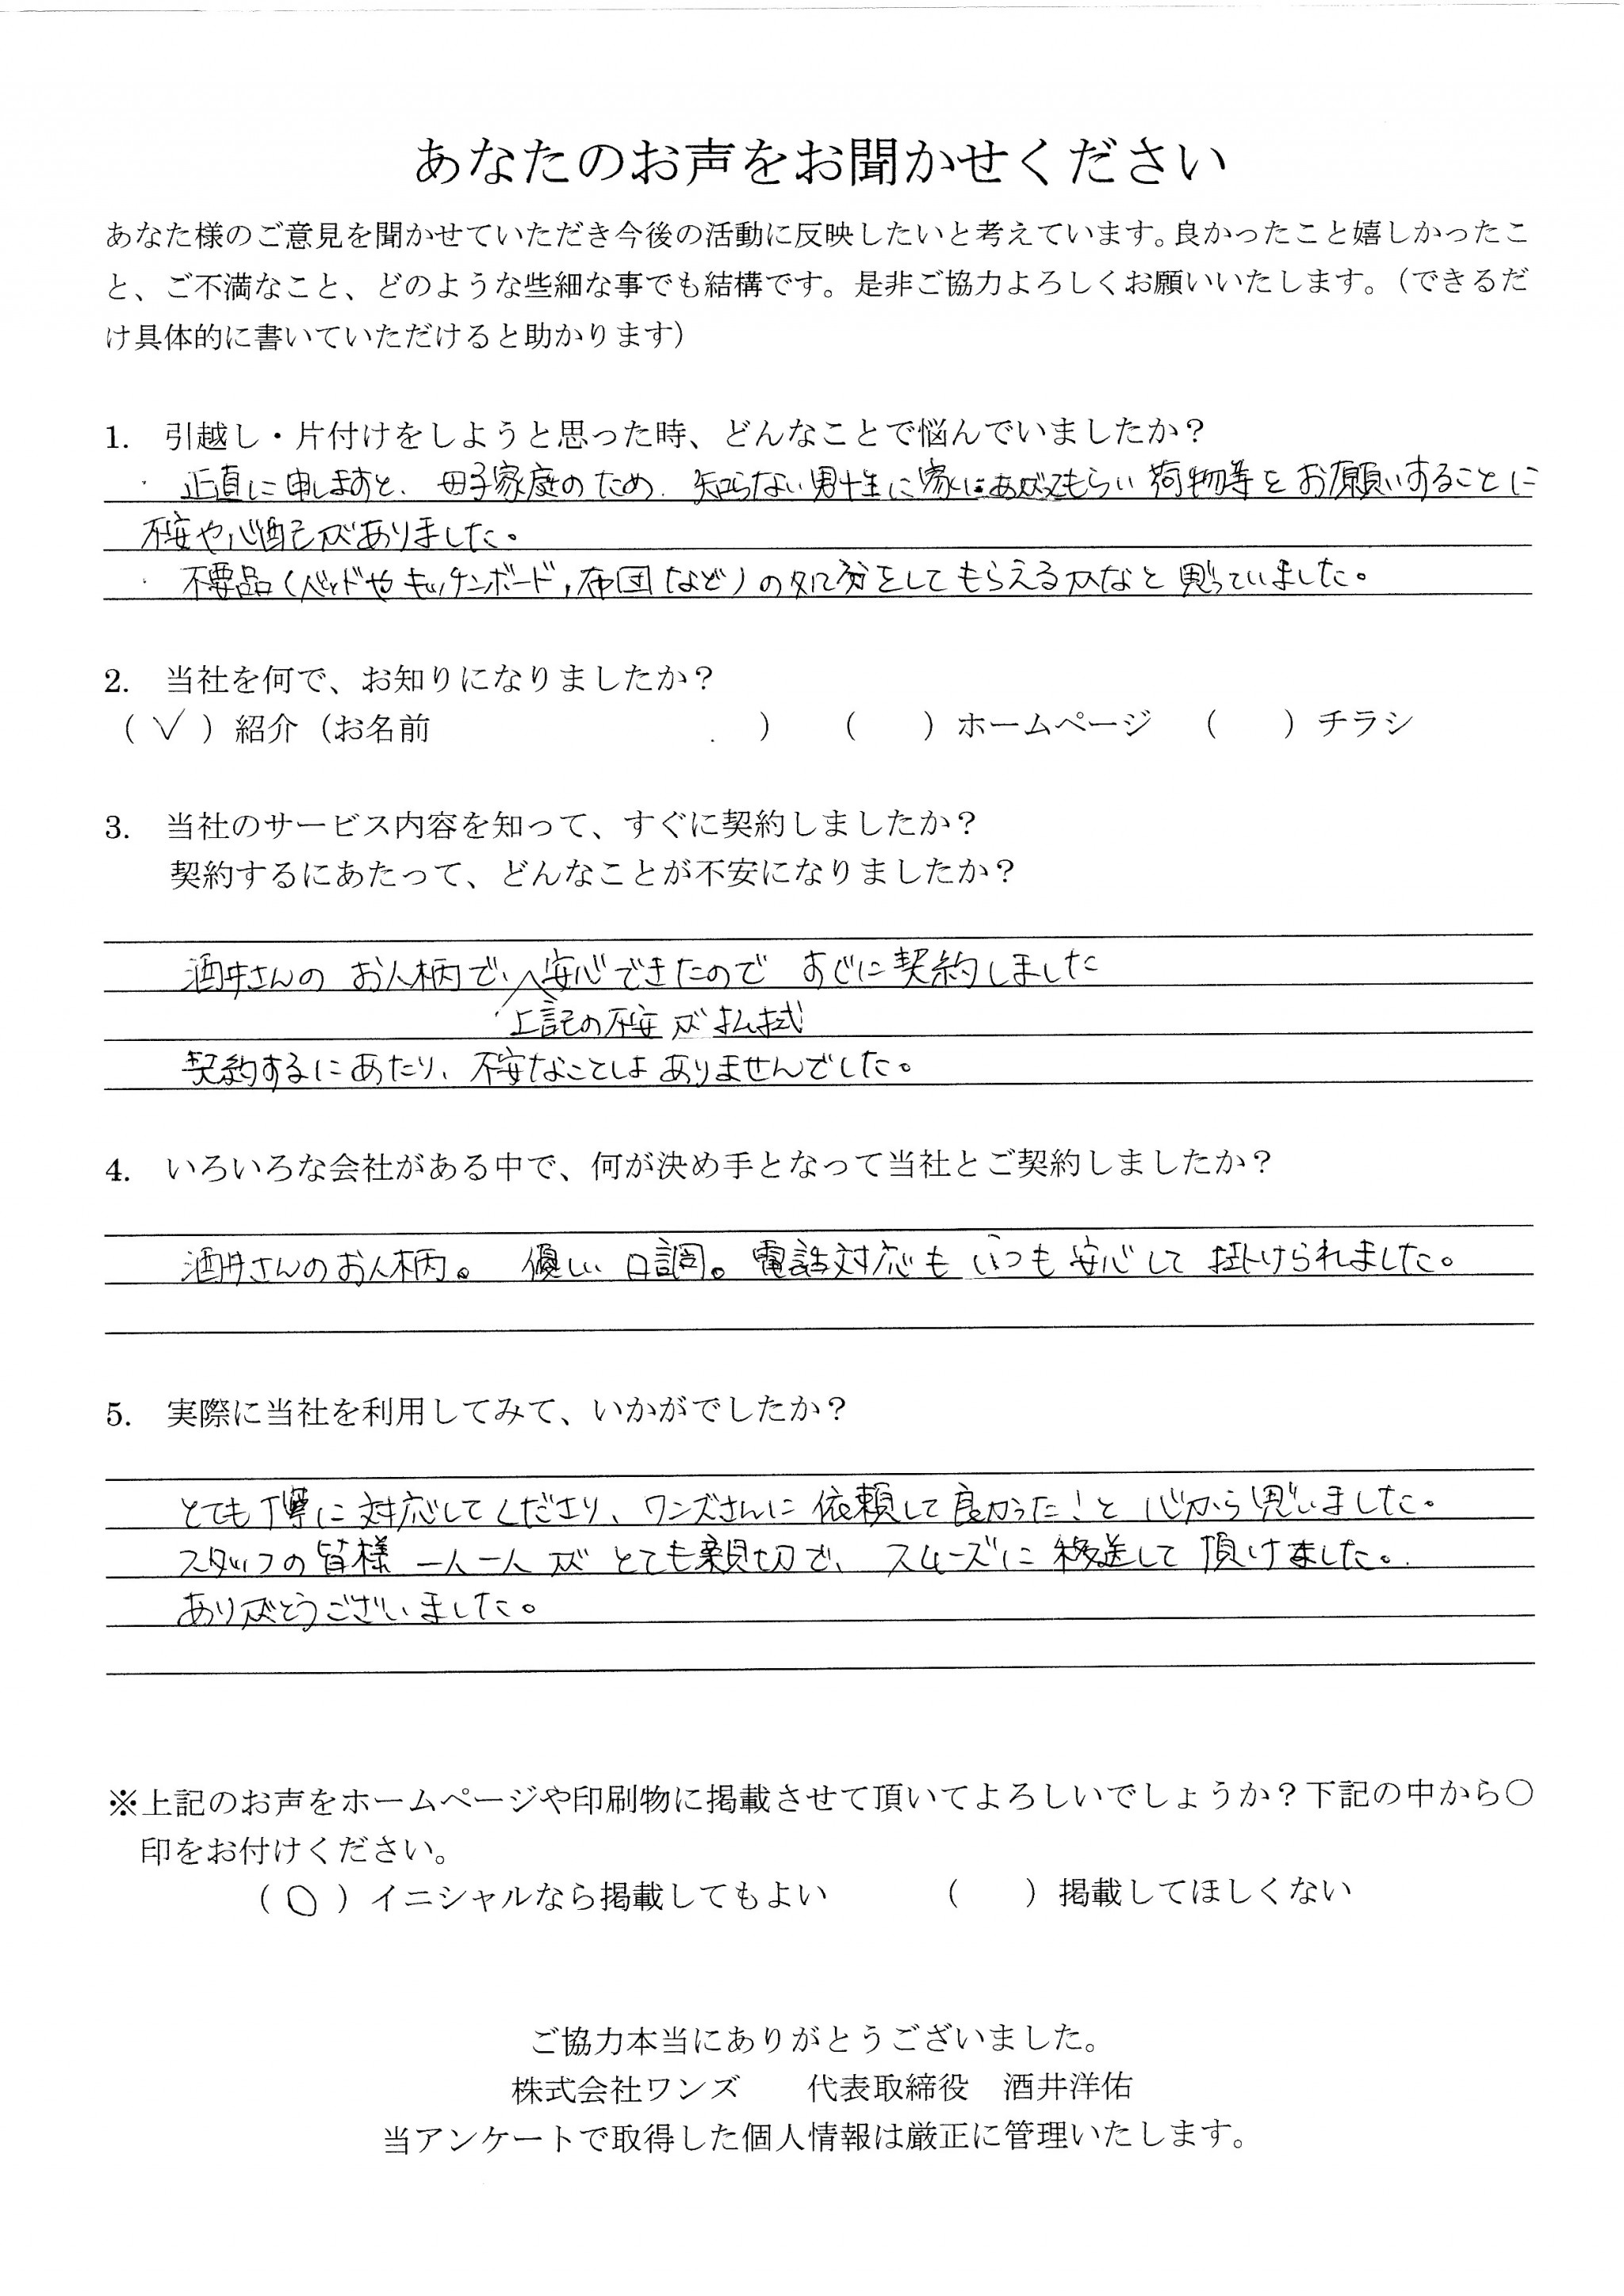 あなたのお声をお聞かせください
あなた様のご意見を聞かせていただき今後の活動に反映したいと考えています。良かったこと嬉しかったこ
と、ご不満なこと、どのような些細な事でも結構です。是非ご協力よろしくお願いいたします。（できるだ
け具体的に書いていただけると助かります）
1. 引越し・片付けをしようと思った時、どんなことで悩んでいましたか？
・ 正直に申しますと、母子家庭のため、知らない男性に家にあがってもらい荷物等をお願いすることに
不安や心配がありました。
・ 不要品（ベッドやキッチンボード，布団など）の処分をしてもらえるかなと思っていました。
2. 当社を何で、お知りになりましたか？
（ ✓ ）紹介（お名前 ） （ ）ホームページ （ ）チラシ
3. 当社のサービス内容を知って、すぐに契約しましたか？
契約するにあたって、どんなことが不安になりましたか？
酒井さんの お人柄で、安心できたので すぐに契約しました
上記の不安が払拭
契約するにあたり、不安なことはありませんでした。
4. いろいろな会社がある中で、何が決め手となって当社とご契約しましたか？
酒井さんのお人柄。 優しい口調。電話対応もいつも安心して掛けられました。
5. 実際に当社を利用してみて、いかがでしたか？
とても丁寧に対応してくださり、ワンズさんに依頼して良かった！と心から思いました。
スタッフの皆様 一人一人がとても親切で、スムーズに移送して頂けました。
ありがとうございました。
※上記のお声をホームページや印刷物に掲載させて頂いてよろしいでしょうか？下記の中から〇
印をお付けください。
（ 〇 ）イニシャルなら掲載してもよい （ ）掲載してほしくない
ご協力本当にありがとうございました。
株式会社ワンズ 代表取締役 酒井洋佑
当アンケートで取得した個人情報は厳正に管理いたします。